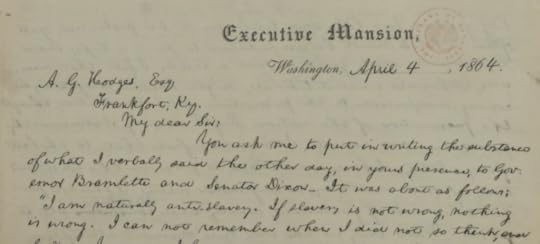 Executive Mansion,
Washington, April 4, 1864.
A. G. Hodges, Esq
Frankfort, Ky.
My dear Sir:
You ask me to put in writing the substance
of what I verbally said the other day, in your presence, to Gov-
ernor Bramlette and Senator Dixon— It was about as follows:
"I am naturally anti-slavery. If slavery is not wrong, nothing
is wrong. I can not remember when I did not so think, and